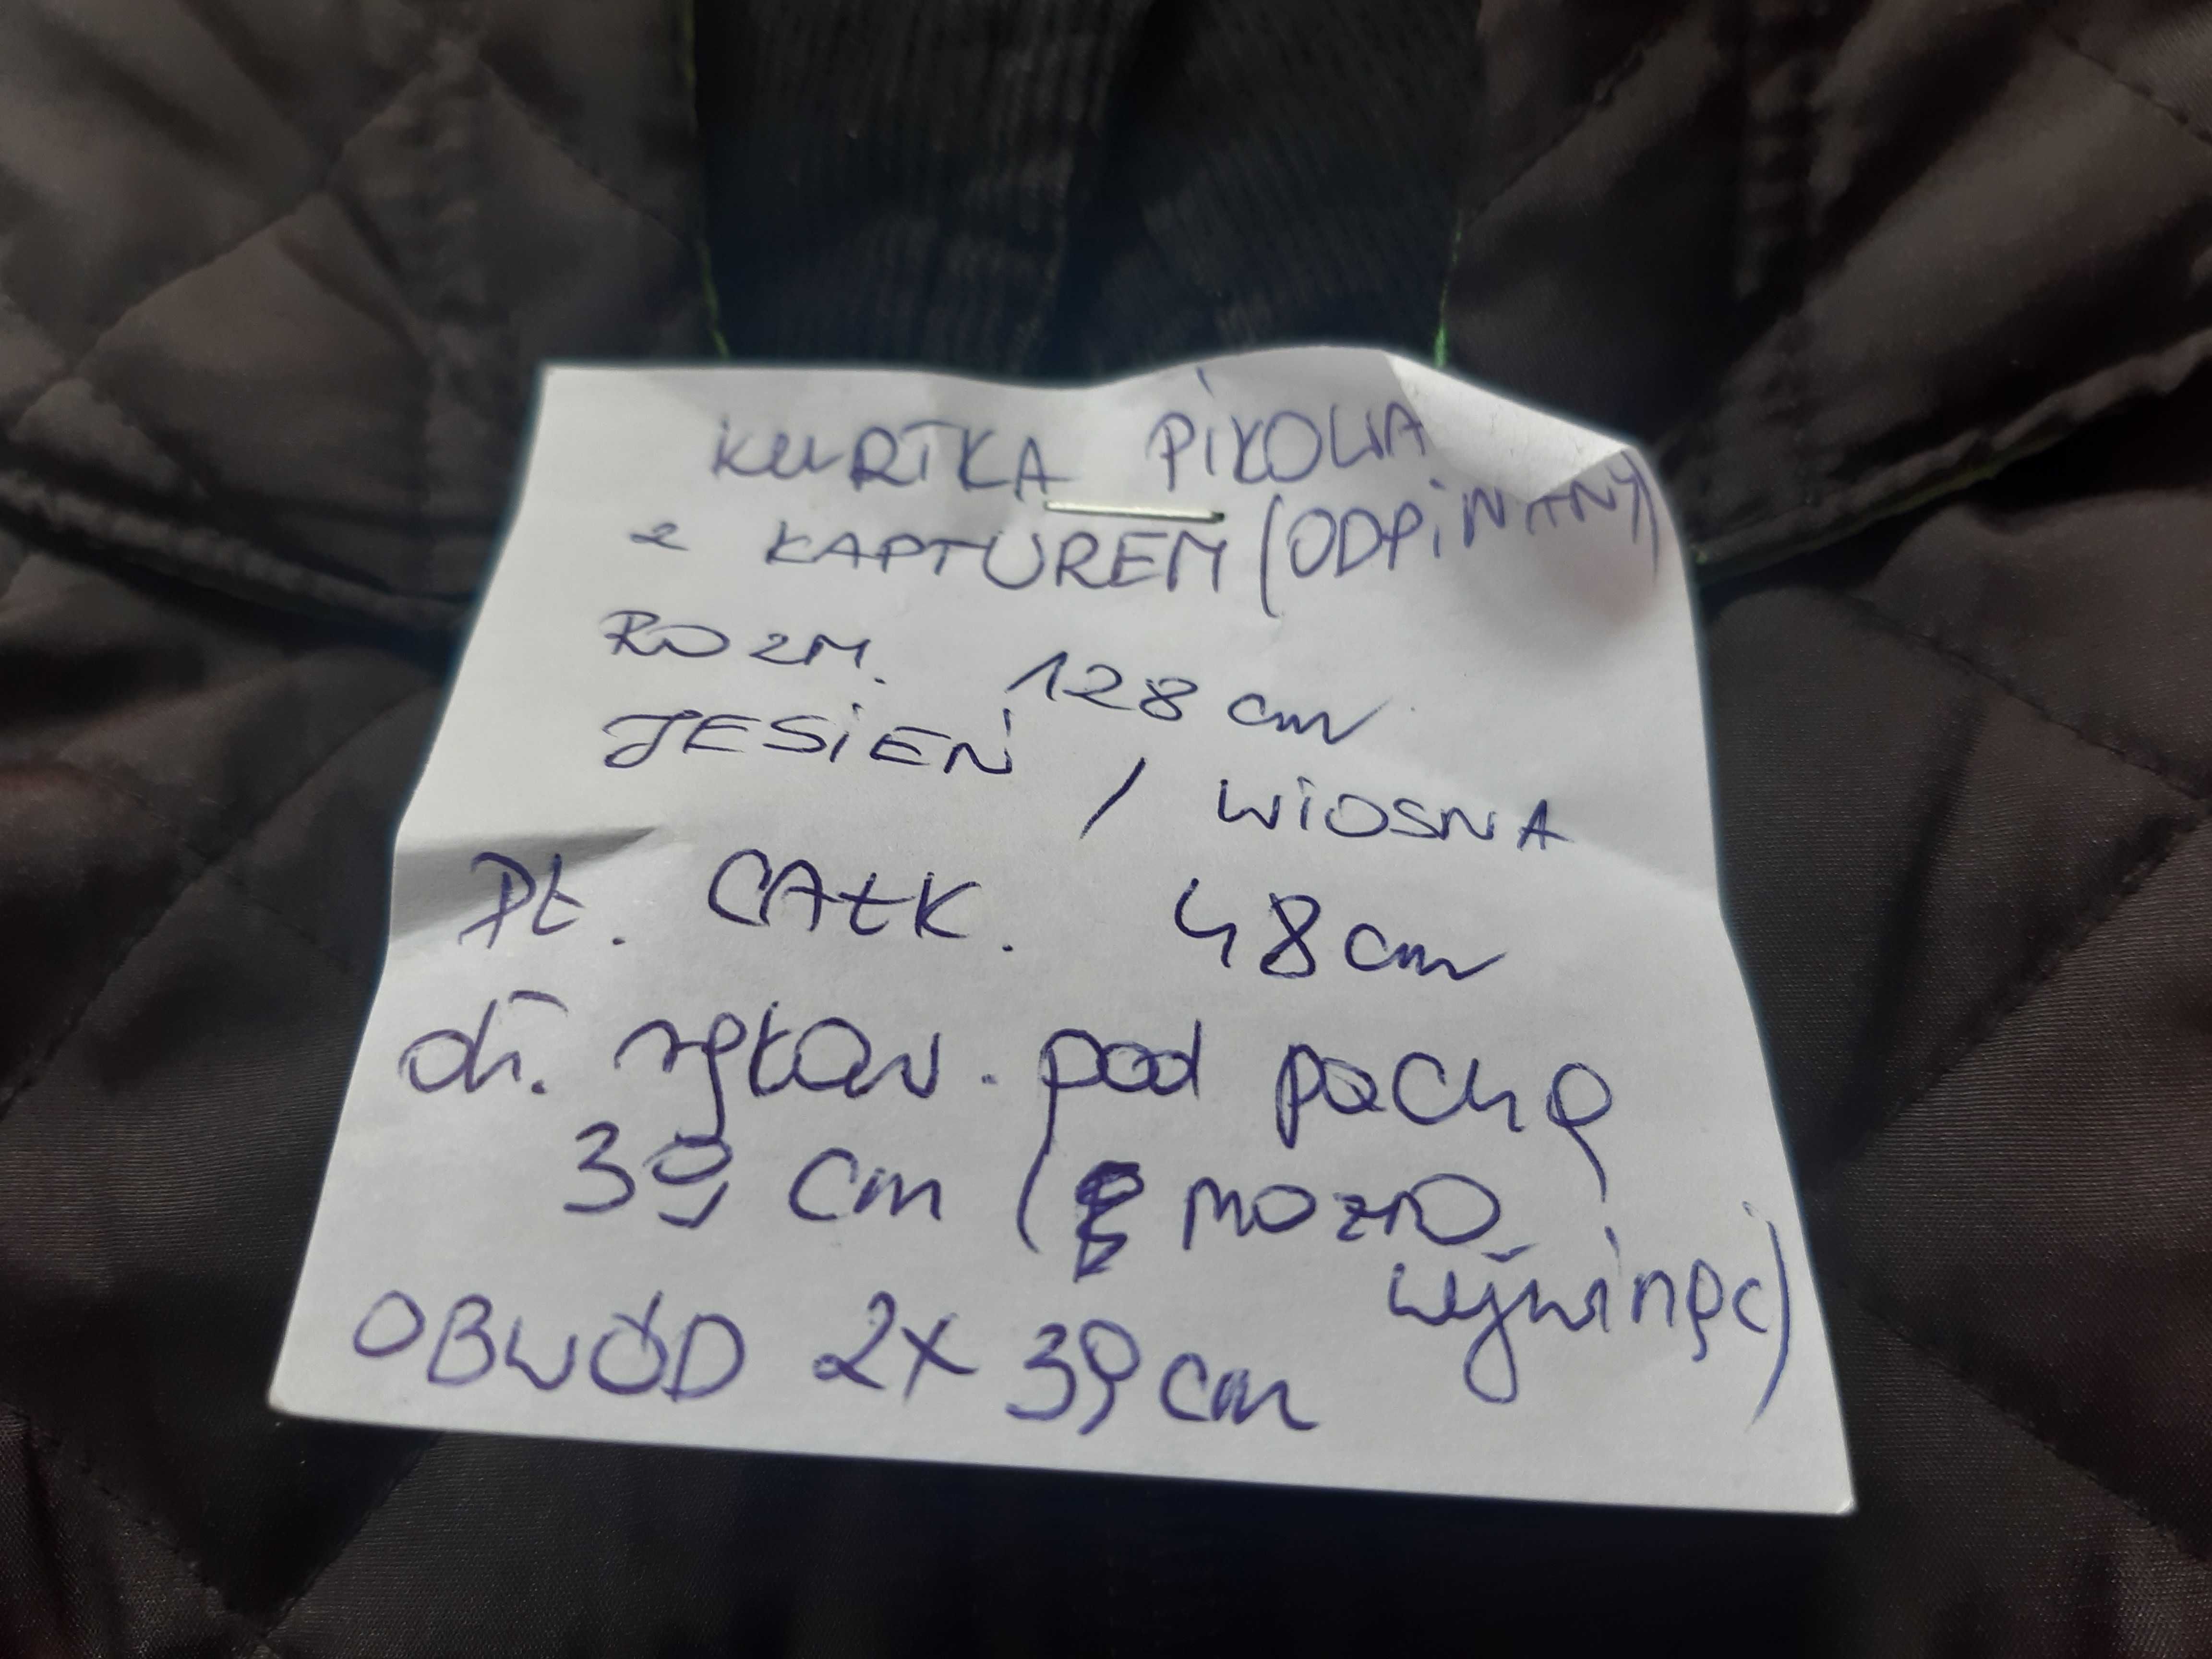 KURTKA PIKOWA
z KAPTUREM (ODPINANY)
ROZM. 128 cm
JESIEŃ / WIOSNA
Dł. CAŁK. 48 cm
dł. rękaw. pod pachę
39 cm ( można
wywinąć)
OBWÓD 2x 39 cm